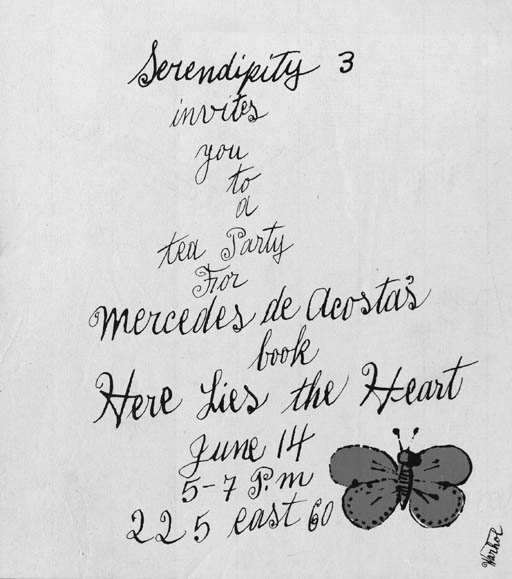 Serendipity 3
invites
you
to
a
tea Party
For
Mercedes de Acosta's
book
Here Lies the Heart
June 14
5-7 P.m
225 east 60
Warhol